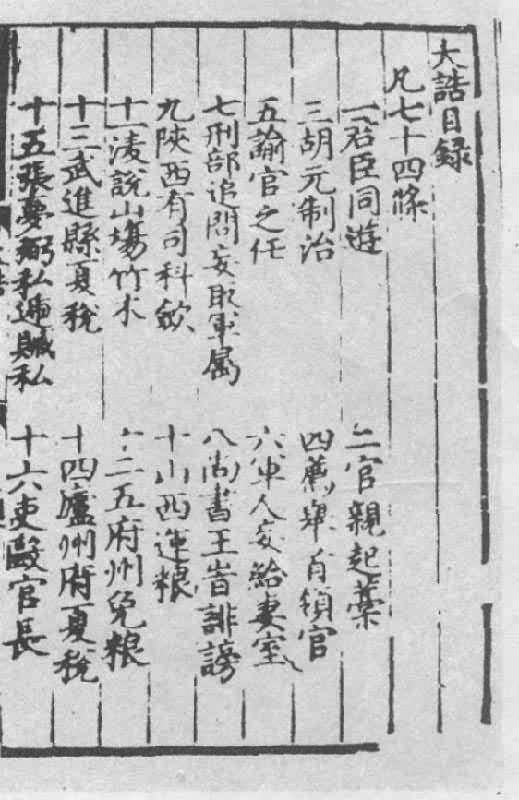 大誥目録
凡七十四條
一君臣同遊 二官親起藁
三胡元制治 四薦舉首領官
五諭官之任 六軍人妄給妻室
七刑部追問妄取軍属 八尚書王峕誹謗
九陝西有司科斂 十山西運粮
十一凌說山場竹木 十二五府州免粮
十三武進縣夏稅 十四廬州府夏稅
十五張夢弼私遞贓私 十六吏毆官長